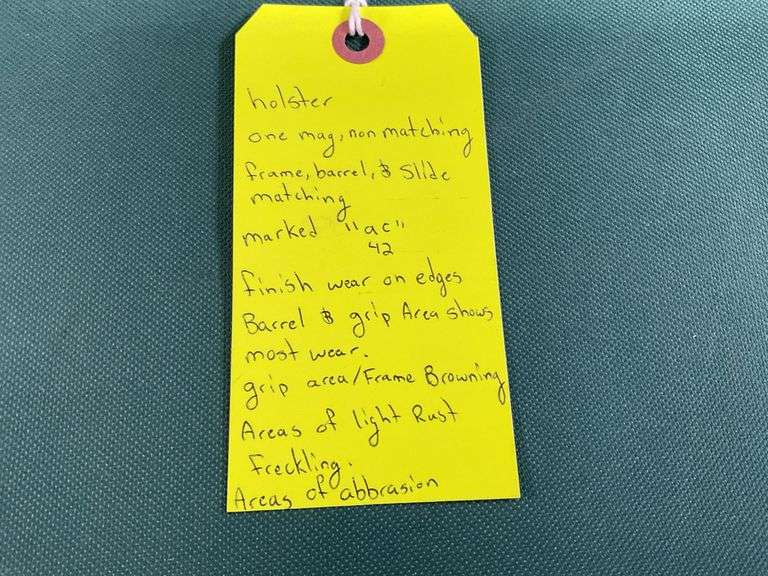 holster
one mag, non matching
frame, barrel, & Slide
matching
marked "ac"
42
finish wear on edges
Barrel & grip Area shows
most wear.
grip area/Frame Browning
Areas of light Rust
Freckling.
Areas of abbrasion